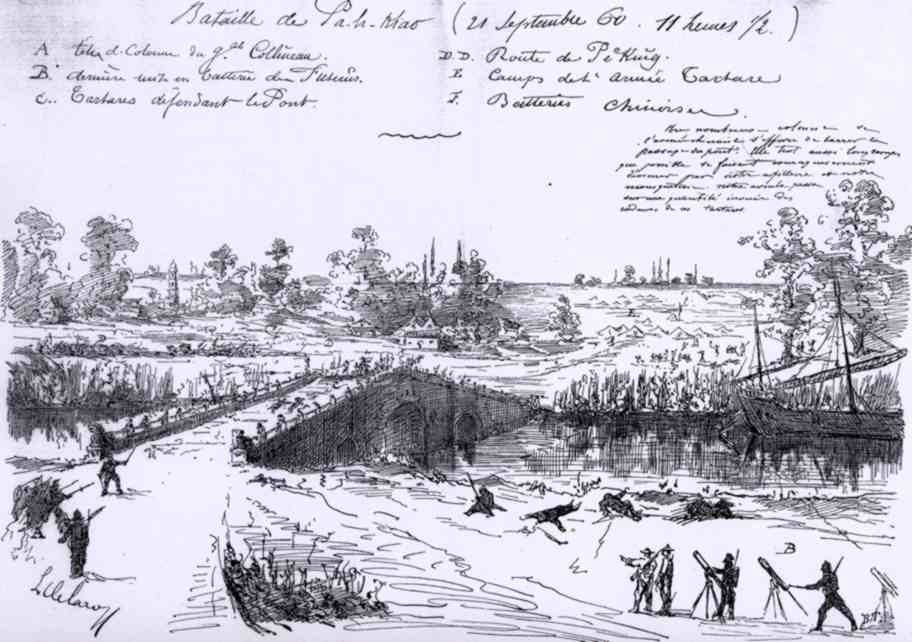 Bataille de Pa-li-kiao (21 Septembre 60. 11 heures 1/2.)
A tête d. Colonne du gal Collineau.
B. dernière mise en batterie des Fuséens.
C.. Tartares défendant le Pont.
D.D. Route de Pé King.
E Camps de l' Armée Tartare
F. Batteries Chinoises.
nombreuse colonne
l'armée chinoise s'efforce de barrer le
passage du pont. Elle tient aussi longtemps
que possible se faisant courageusement
par notre artillerie et notre
mousqueterie notre armée passe
sur une quantité inouïe des
cadavres de ces tartares
A
B